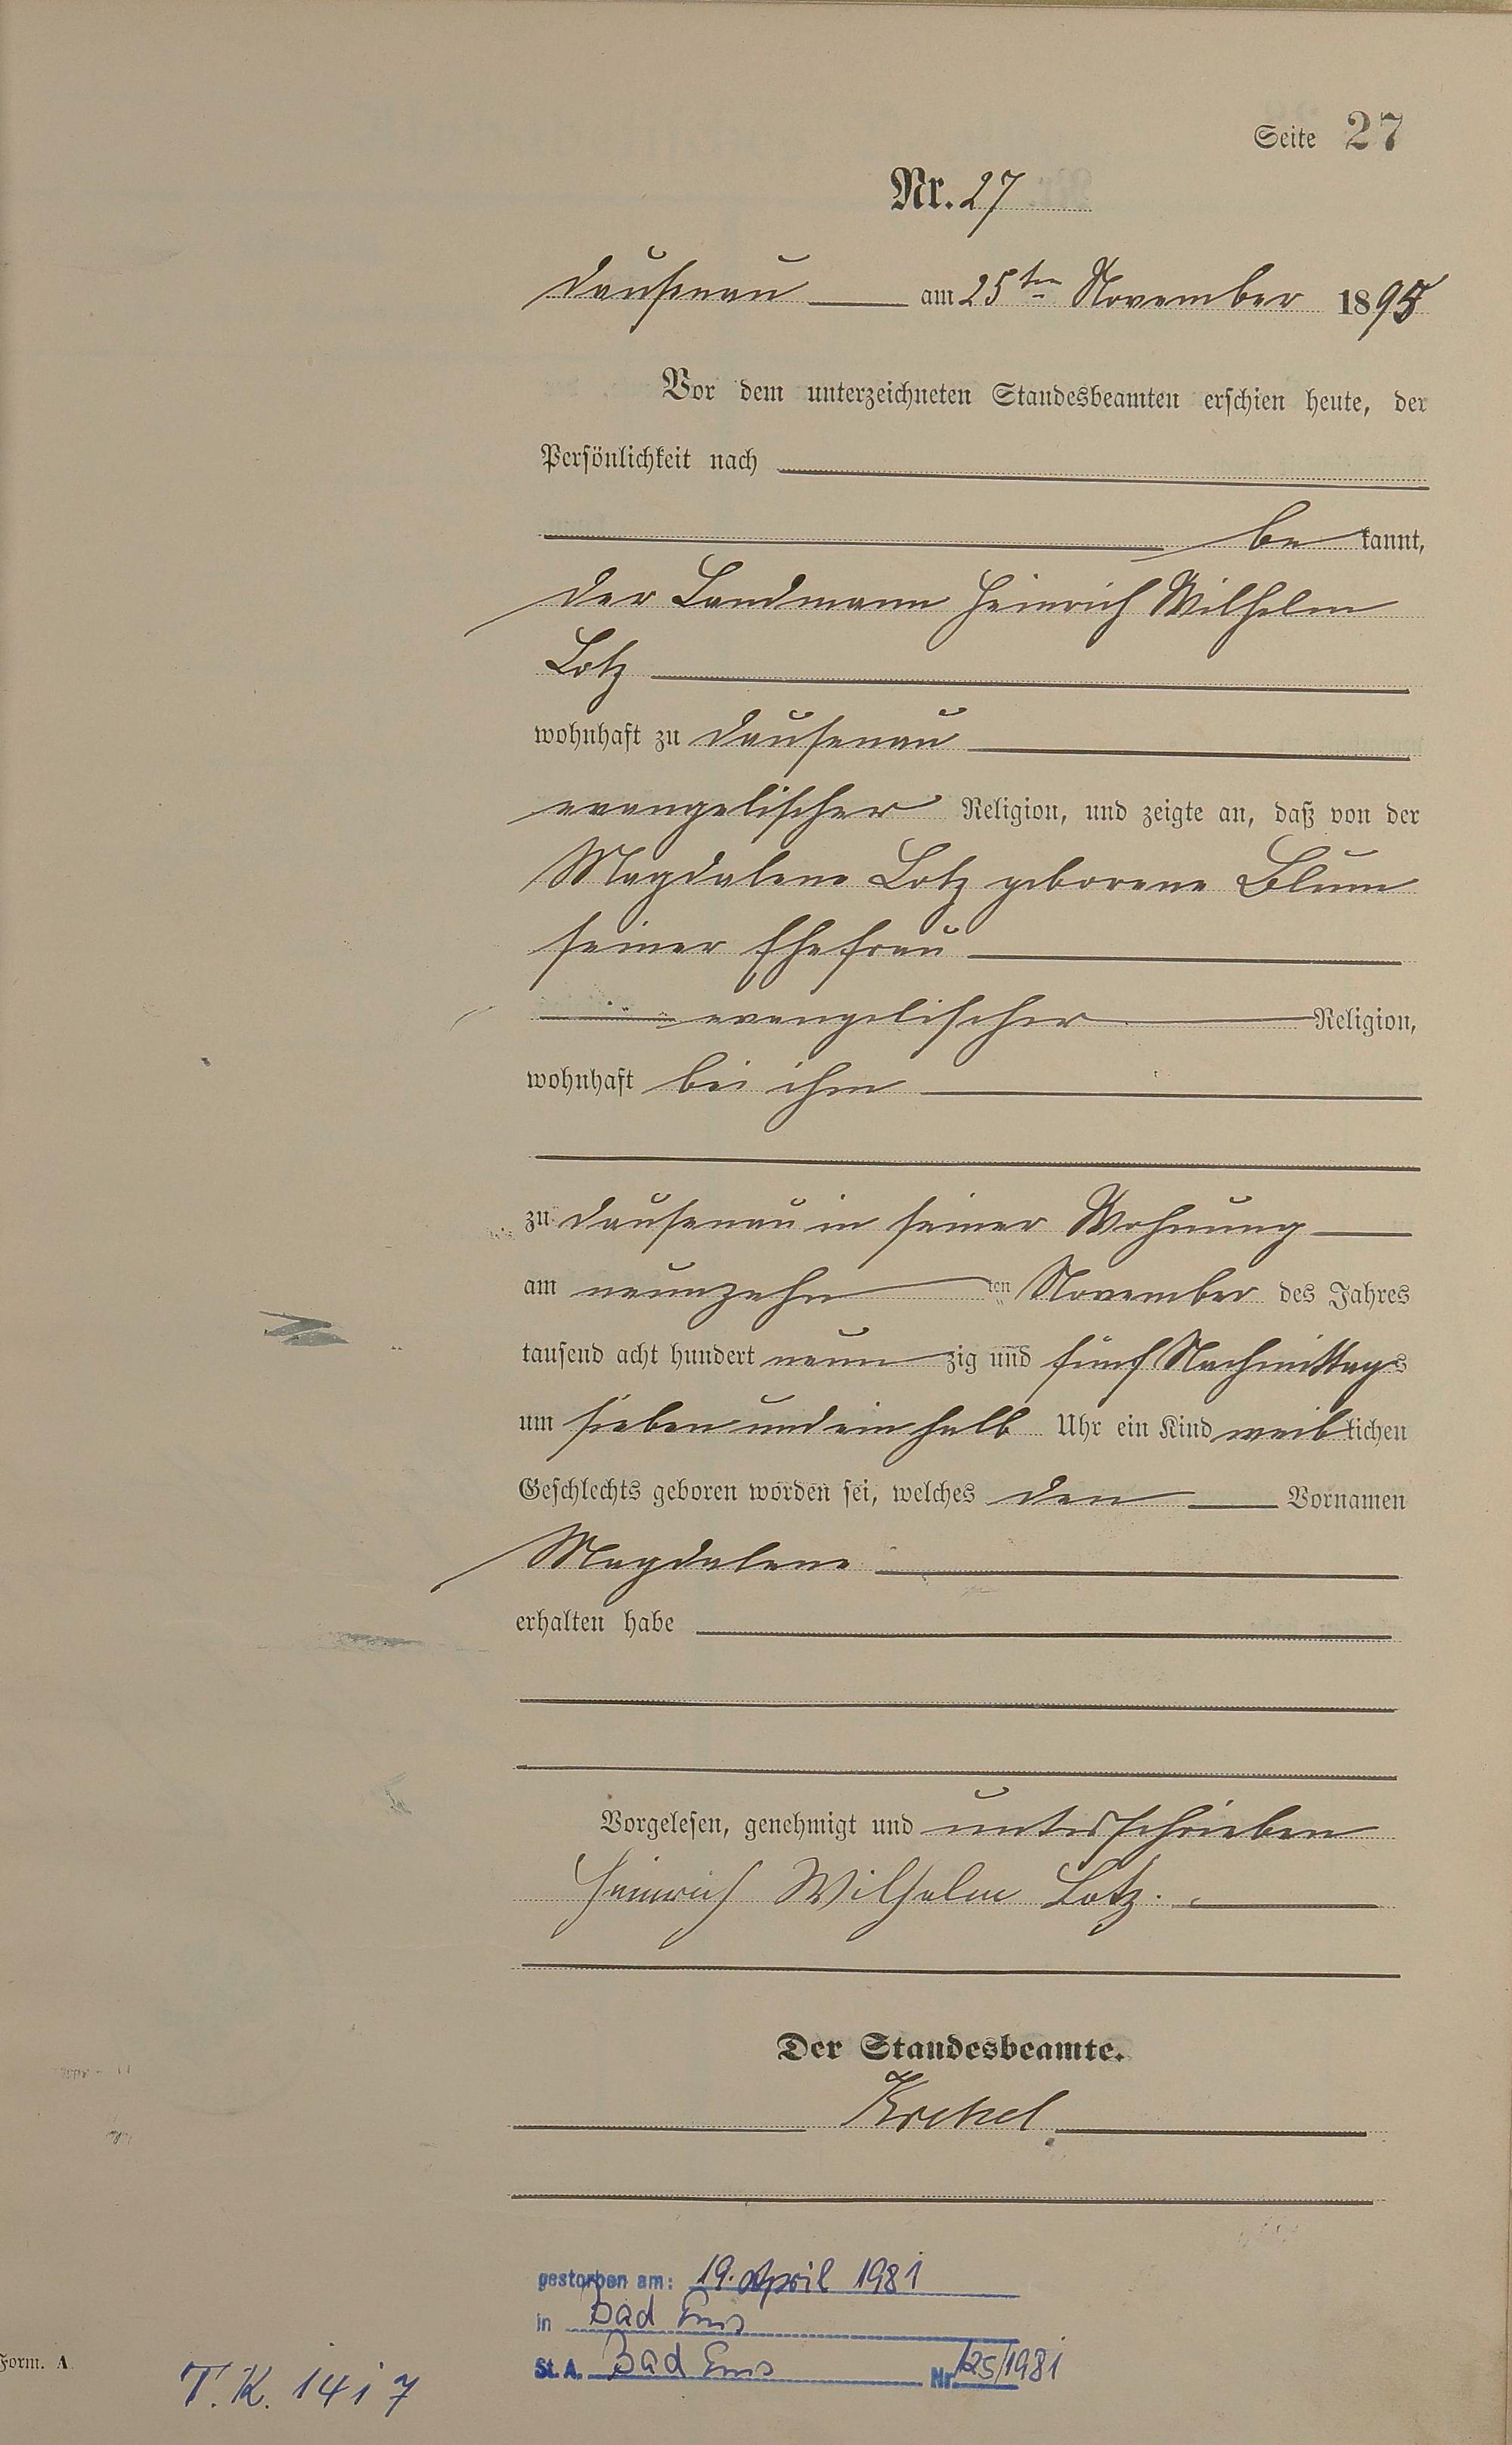 Seite 27
Nr. 27
Dausenau am 25ten November 1895
Vor dem unterzeichneten Standesbeamten erschien heute, der
Persönlichkeit nach
be kannt,
der Landmann Heinrich Wilhelm
Lotz
wohnhaft zu Dausenau
evangelischer Religion, und zeigte an, daß von der
Magdalene Lotz geborene Blum
seiner Ehefrau
evangelischer Religion,
wohnhaft bei ihm
zu Dausenau in seiner Wohnung
am neunzehn ten November des Jahres
tausend acht hundert neun zig und fünf Nachmittags
um sieben und ein halb Uhr ein Kind weib lichen
Geschlechts geboren worden sei, welches den Vornamen
Magdalene
erhalten habe
Vorgelesen, genehmigt und unterschrieben
Heinrich Wilhelm Lotz.
Der Standesbeamte.
gestorben am: 19. April 1981
in Bad Ems
St. A. Bad Ems Nr. 125/1981
Form. A.
T.K. 14 i 7